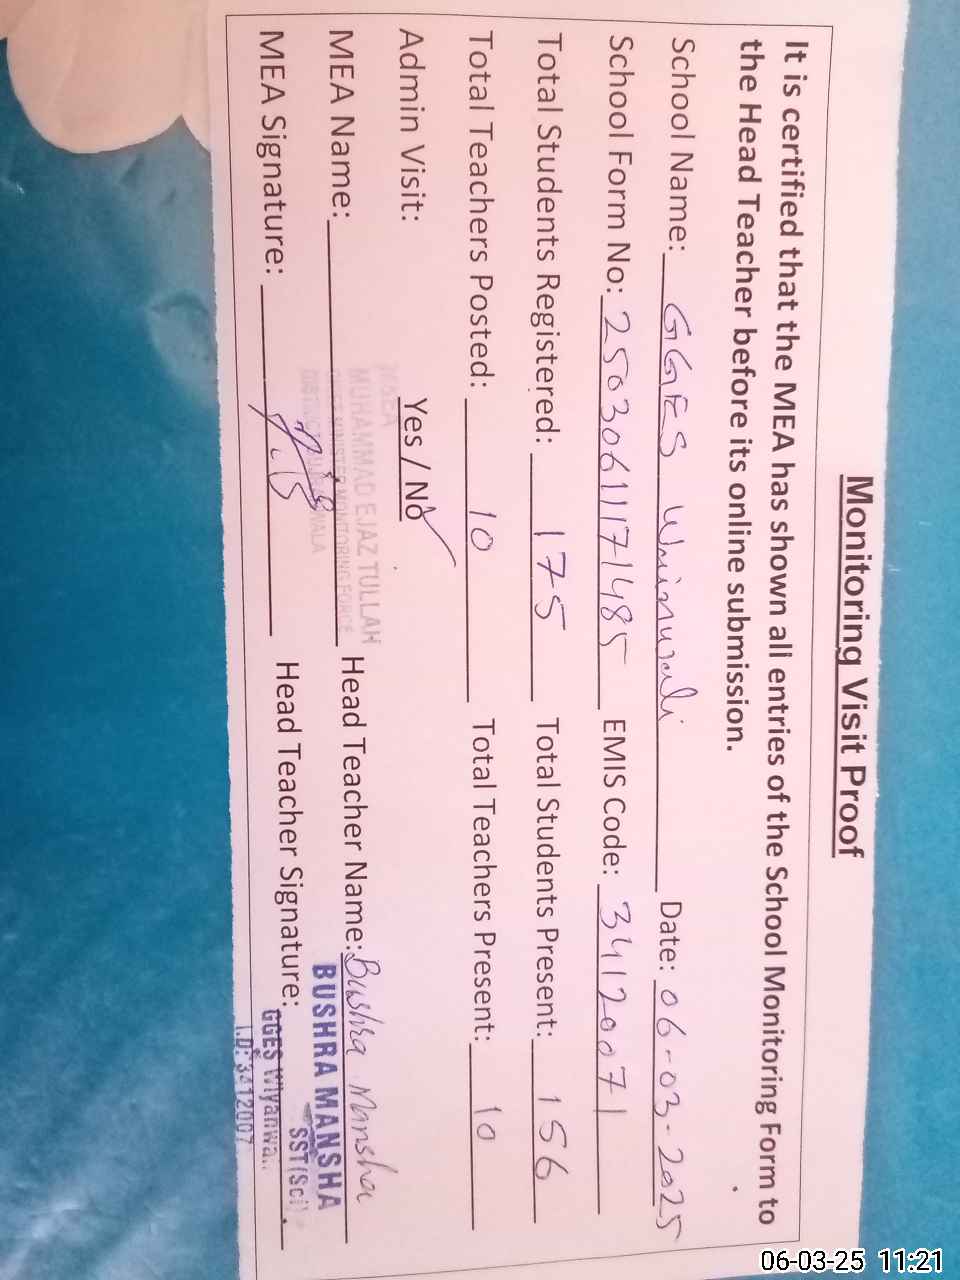 Monitoring Visit Proof
It is certified that the MEA has shown all entries of the School Monitoring Form to
the Head Teacher before its online submission.
School Name: GGES Date: 06-03-2025
School Form No: 25030611171485 EMIS Code: 34120071
Total Students Registered: 175 Total Students Present: 156
Total Teachers Posted: 10 Total Teachers Present: 10
Admin Visit: Yes / No
MUHAMMAD EJAZ TULLAH
MEA Name: Head Teacher Name: Bushra Mansha
CHIEF MINISTER MONITORING FORCE
DISTRICT
BUSHRA MANSHA
SST (Sci)
MEA Signature: Head Teacher Signature:
GGES Wiyanwa
I.D: 3412007
06-03-25 11:21